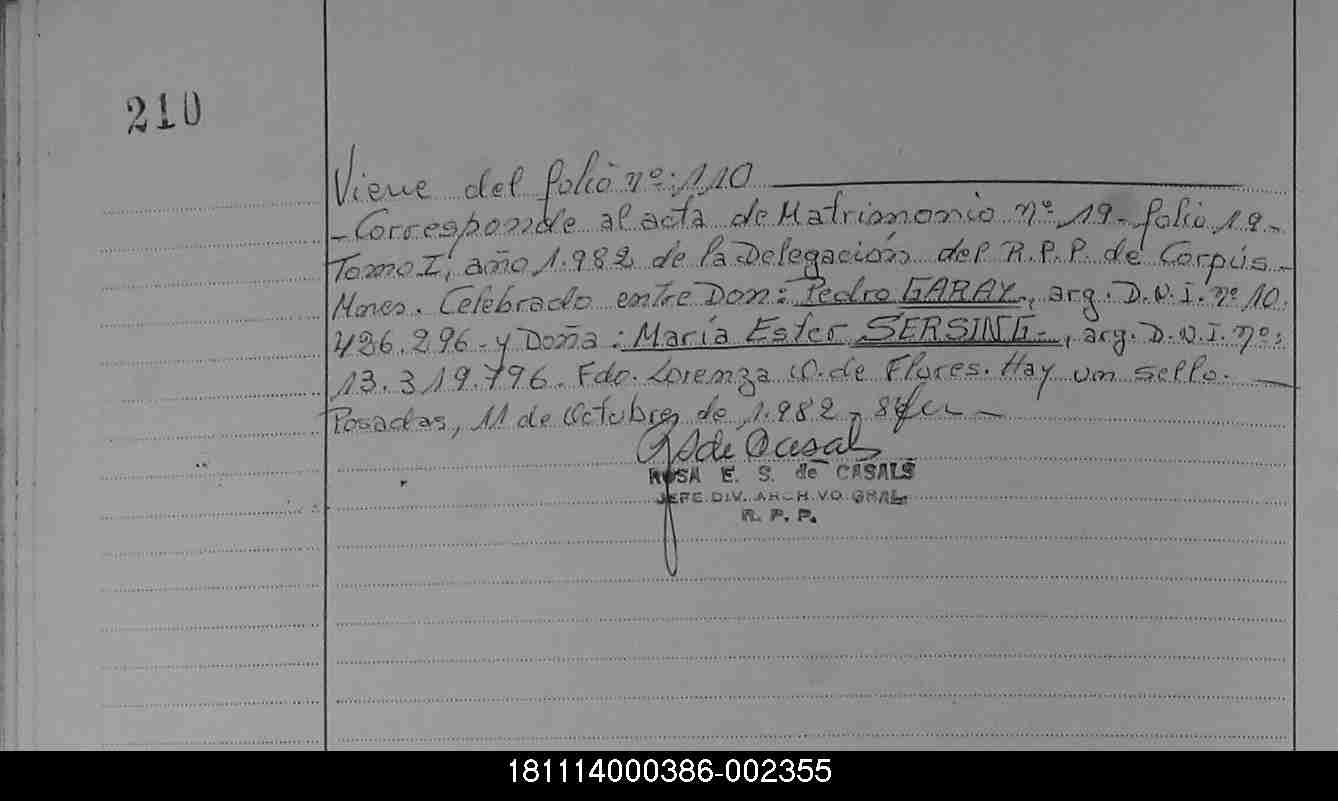 210
Viene del folio nº: 110
- Corresponde al acta de Matrimonio nº 19 - folio 19 -
Tomo I, año 1.982 de la Delegación del R.P.P. de Corpús -
Mnes. Celebrado entre Don: Pedro GARAY, arg. D.N.I. nº 10.
426.296 - y Doña: María Ester SERSING -, arg. D.N.I. nº:
13.319.796. Fdo. Lorenza de Flores. Hay un sello. -
Posadas, 11 de Octubre de 1.982 -
de Casals
ROSA E. S. de CASALS
JEFE DIV. ARCHIVO GRAL.
R. P. P.
181114000386-002355